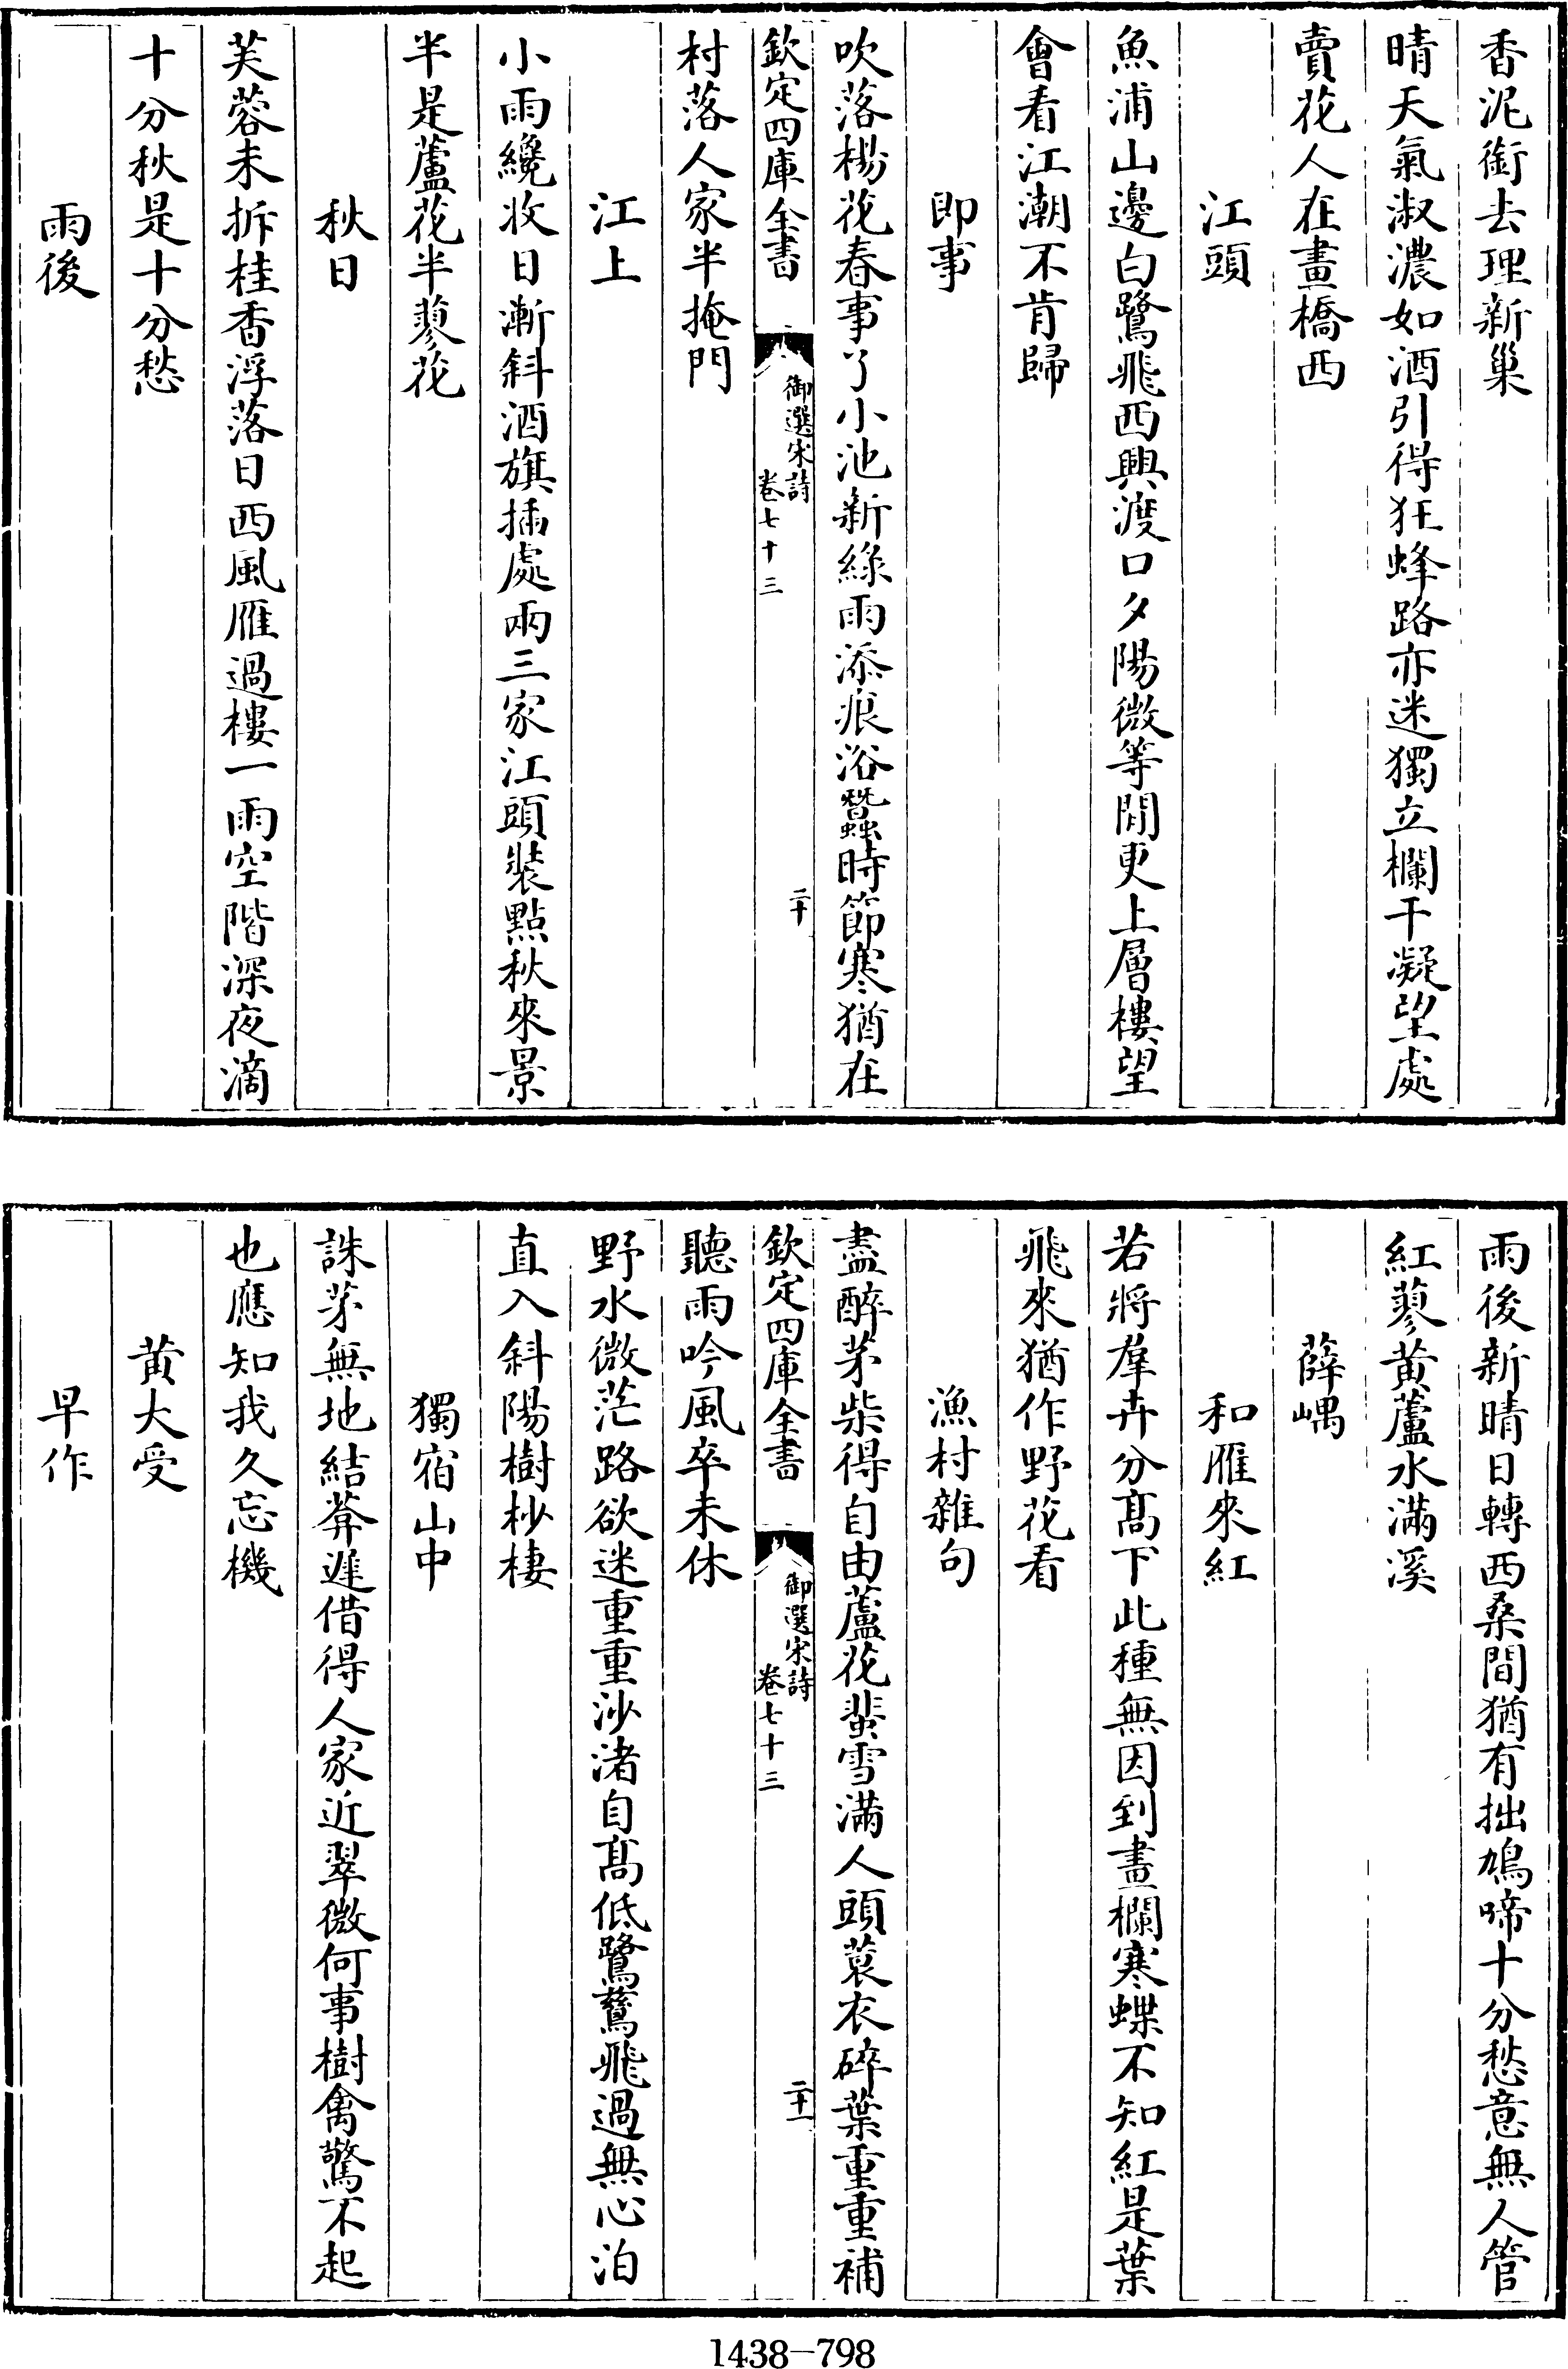 香泥銜去理新巢
晴天氣淑濃如酒引得狂蜂路亦迷獨立欄干凝望處
賣花人在畫橋西
江頭
魚浦山邊白鷺飛西興渡口夕陽微等閒更上層樓望
會看江潮不肯歸
即事
吹落楊花春事了小池新綠雨添痕浴蠶時節寒猶在
欽定四庫全書
御選宋詩
卷七十三
二十
村落人家半掩門
江上
小雨纔收日漸斜酒旗插處兩三家江頭裝點秋來景
半是蘆花半蓼花
秋日
芙蓉未拆桂香浮落日西風雁過樓一雨空階深夜滴
十分秋是十分愁
雨後
雨後新晴日轉西桑間猶有拙鳩啼十分愁意無人管
紅蓼黄蘆水滿溪
薛嵎
和雁來紅
若將羣卉分髙下此種無因到畫欄寒蝶不知紅是葉
飛來猶作野花看
漁村雜句
盡醉茅柴得自由蘆花蜚雪滿人頭蓑衣碎葉重重補
欽定四庫全書
御選宋詩
卷七十三
二十一
聽雨吟風卒未休
野水微茫路欲迷重重沙渚自髙低鷺鷥飛過無心泊
直入斜陽樹杪棲
獨宿山中
誅茅無地結葊遲借得人家近翠微何事樹禽驚不起
也應知我久忘機
黄大受
早作
1438-798